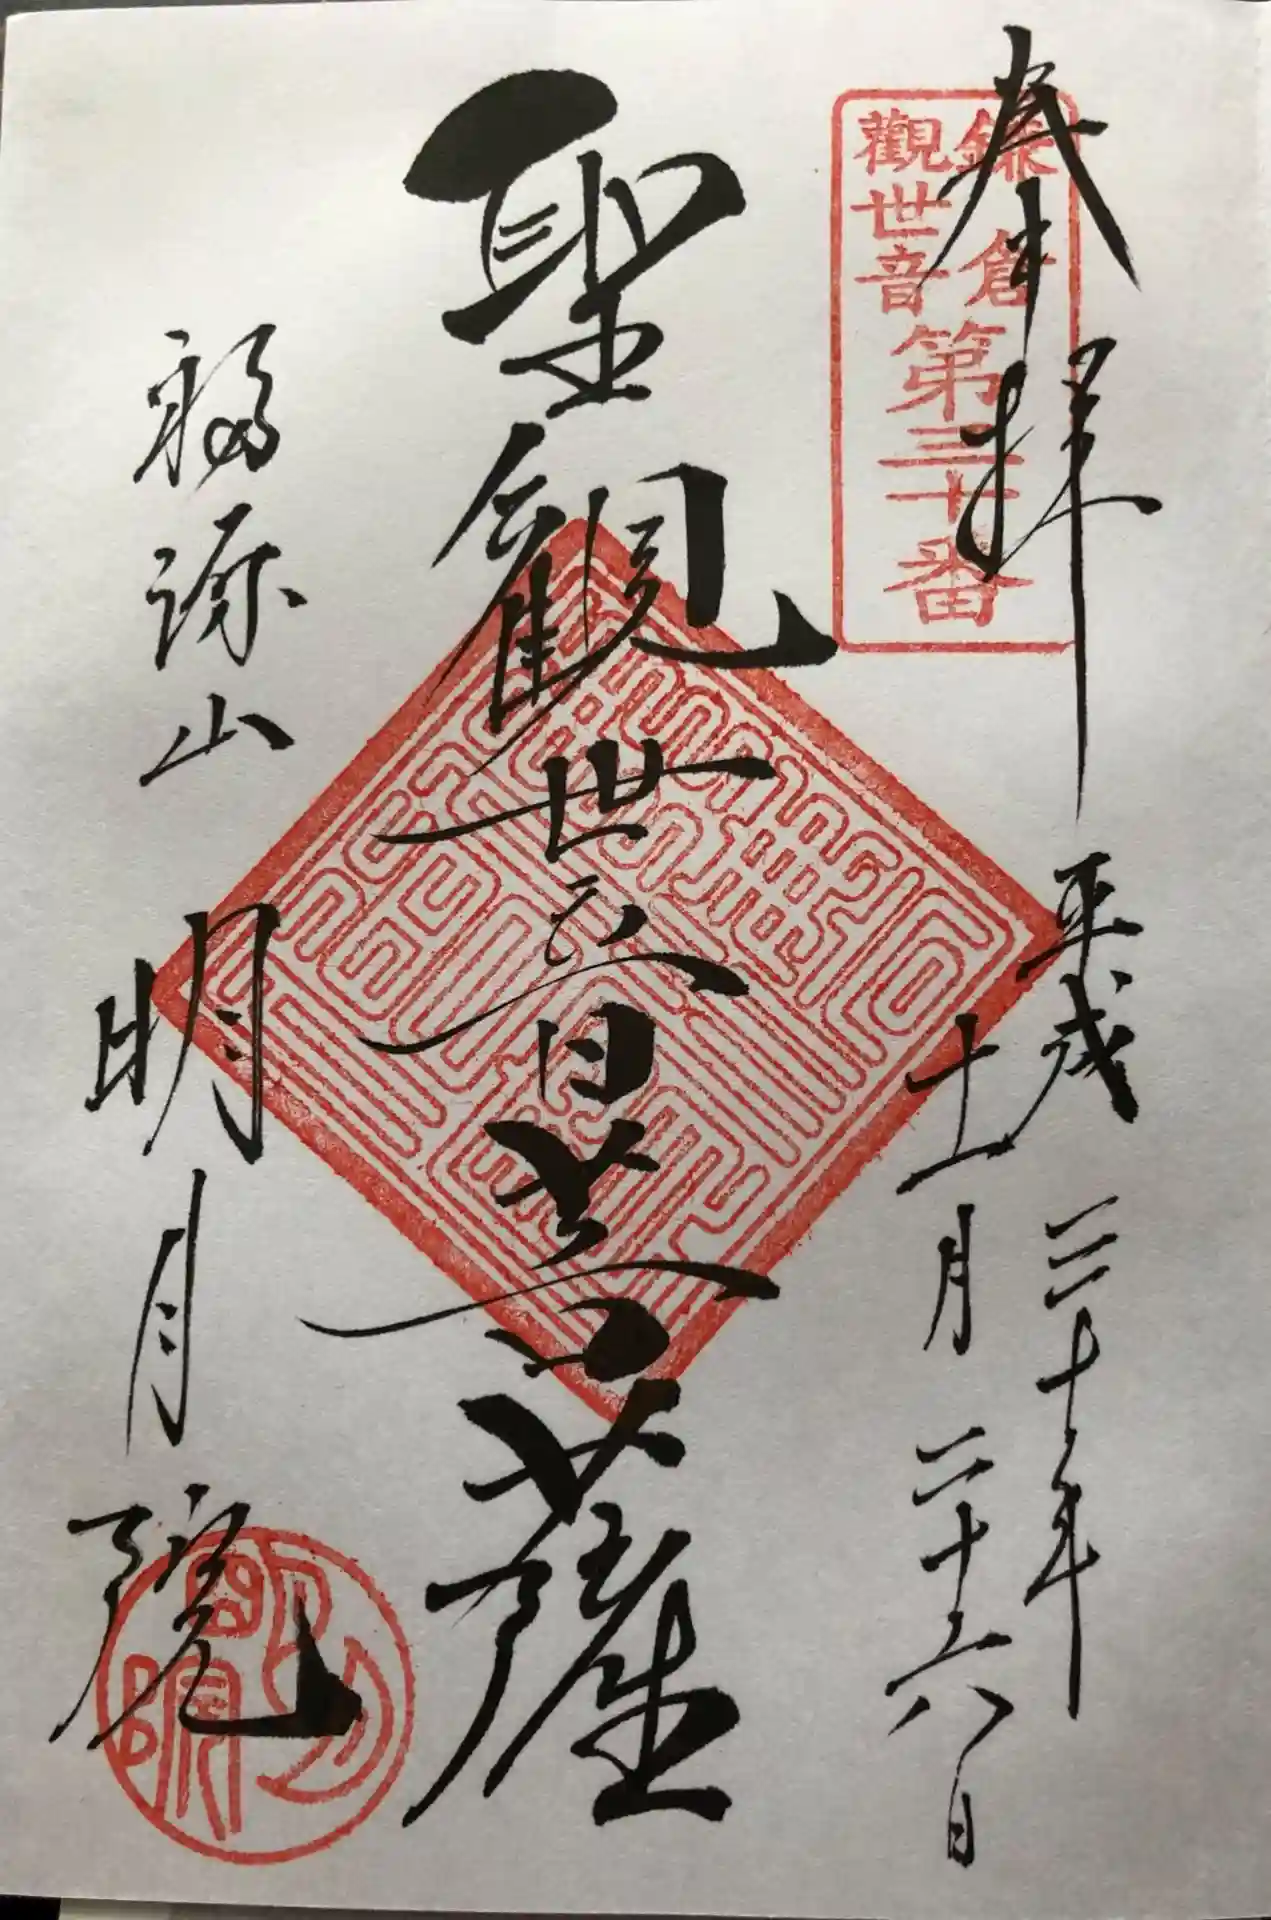 奉拝
平成三十年
十一月二十六日
鎌倉
觀世音
第三十番
聖観世音菩薩
福源山
明月院